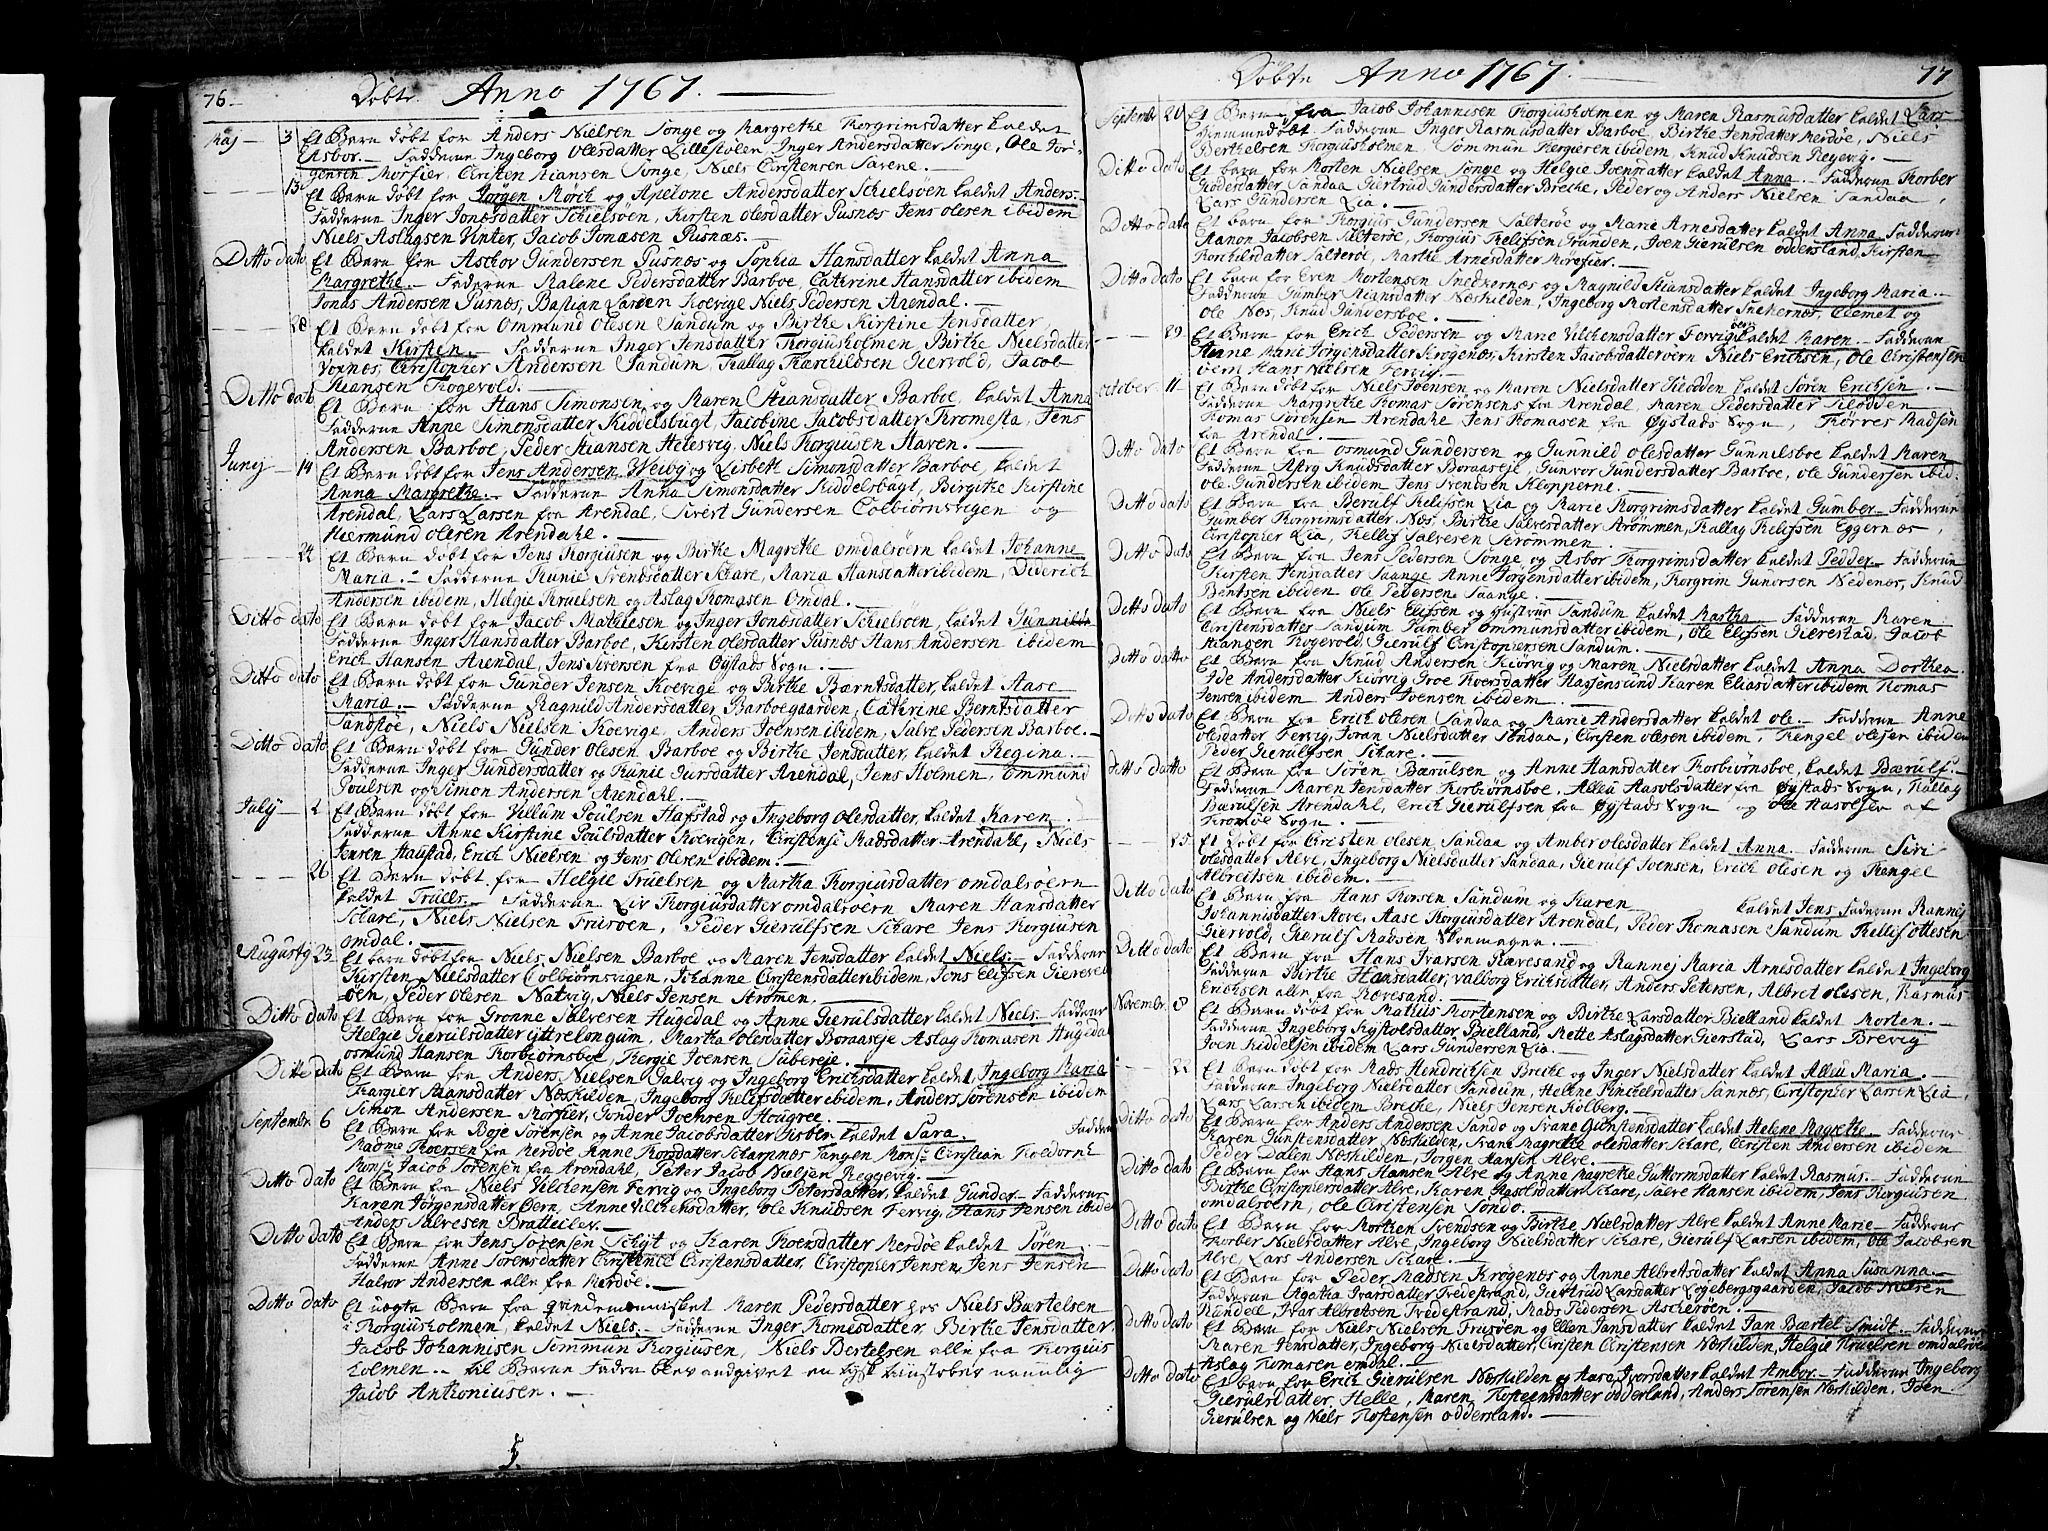 76.
Döbte Anno 1767.
Maj 3 Et Barn döbt for Anders Nielsen Songe og Margrethe Thorgrimsdatter kaldet
Asbor. Fadderne Ingeborg Olesdatter Lillestölen, Inger Andersdatter Songe, Ole Jör-
gensen Morfier, Christen Stiansen Songe, Niels Christensen
Et Barn döbt for Jörgen Mörch og Apelone Andersdatter Schielsöen kaldet Anders.
Fadderne Inger Jonæsdatter Schielsöen, Kirsten Olesdatter Pusnæs Jens Olesen ibidem
Niels Aslagsen Vinter, Jacob Jonæsen Pusnæs.
Ditto dato Et Barn for Aschov Gundersen Pusnæs og Sophia Hansdatter kaldet Anna
Margrethe. Fadderne Malene Pedersdatter Barboe, Cathrine Hansdatter ibidem
Jonas Andersen Pusnæs, Bastian Larsen Koevige Niels Pedersen Arendal.
28 Et Barn döbt for Ommund Olesen Sandum og Birthe Kirstine Jensdatter,
kaldet Kirsten. Fadderne Inger Jensdatter Thorgiusholmen, Birthe Nielsdatter
Voxnæs, Christopher Andersen Sandum, Thallag Tharchildsen Giervold, Jacob
Stiansen Rogevold.
Ditto dato Et Barn for Hans Simonsen og Karen Stiansdatter Barboe, kaldet Anna
Fadderne Anne Simonsdatter Kiddelsbugt, Jacobine Jacobsdatter Kromesta, Jens
Andersen Barboe, Peder Stiansen Helesvig, Niels Thorgiusen Haven.
Junij 14 Et Barn döbt for Jens Andersen Weiby og Lisbeth Simonsdatter Barboe, kaldet
Anna Margrethe. Fadderne Anna Simonsdatter Kiddelsbugt, Birgithe Kirstine
Arendal, Lars Larsen fra Arendal, Sivert Gundersen Colbiörnsvigen og
Hiermund Olesen Arendahl.
24 Et Barn döbt for Jens Thorgiusen og Birthe Magrethe Omdalsöern kaldet Johanne
Maria. Fadderne Thunie Svendsdatter Schare, Maria Hansdatter ibidem, Diderich
Andersen ibidem, Helgie Truelsen og Aslag Thomasen Omdal.
Ditto dato Et Barn döbt for Jacob Mathiesen og Inger Jonæsdatter Schielsöen, kaldet Gunnilde
Fadderne Inger Hansdatter Barboe, Kirsten Olesdatter Pusnæs Hans Andersen ibidem
Erich Hansen Arendal, Jens Siversen fra Öystads Sogn.
Ditto dato Et Barn döbt for Gunder Jensen Koevige og Birthe Bærntsdatter, kaldet Aase
Maria. Fadderne Ragnild Andersdatter Barboegaarden, Cathrine Berntsdatter
Sandstöe, Niels Nielsen Koevige, Anders Joensen ibidem, Salve Pedersen Barboe.
Ditto dato Et Barn döbt for Gunder Olesen Barboe og Birthe Jensdatter, kaldet Regina.
Fadderne Inger Gundersdatter og Thunie Jursdatter Arendal, Jens Holmen, Ommund
Poulsen og Simon Andersen Arendahl.
July 2 Et Barn döbt for Villum Poulsen Hafstad og Ingeborg Olesdatter, kaldet Karen.
Fadderne Anne Kirstine Poulsdatter Koevigen, Christense Madsdatter Arendahl, Niels
Jensen Haustad, Erich Nielsen og Jens Olesen ibidem.
26 Et Barn döbt for Helgie Truelsen og Martha Thorgiusdatter Omdalsöern
kaldet Truels. Fadderne Liv Thorgiusdatter Omdalsöern Maren Hansdatter
Schare, Niels Nielsen Trusöen, Peder Gierulfsen Schare Jens Thorgiusen
Omdal.
Augusty 23. Et barn döbt for Niels Nielsen Barboe og Maren Jensdatter kaldet Niels. Fadderne
Kirsten Nielsdatter Colbiörnsvigen, Johanne Christensdatter ibidem, Jens Elefsen Gierevel
öen, Peder Olesen Natvig, Niels Jensen Strömen.
Ditto dato Et Barn for Grönne Salvesen Hugedal og Anne Gierulsdatter kaldet Niels. Fadderne
Helgie Gierulsdatter Yttrelongum, Martha Olesdatter Boraaseje Aslag Thomasen Hugedal
Osmund Hansen Torbiörnsboe, Tergie Joensen Subereje.
Ditto dato Et Barn for Anders Nielsen Galvig og Ingeborg Erichsdatter kaldet, Ingeborg Maria
Thargier Stiansdatter Næskilden, Ingeborg Thelifsdatter ibidem, Anders Sörensen ibidem
Simon Andersen Morfier, Gonder Joensen Hougree.
September 6 Et Barn for Boje Sörensen og Anne Jacobsdatter kaldet Sara. Fadderne
Madme Thoersen fra Merdöe, Anne Thorsdatter Scharpnæs Tangen Mons: Christian Tholdorne
Mons: Jacob Sörensen fra Arendahl, Peter Jacob Nielsen Reggevig.
Ditto dato Et Barn for Niels Vilchensen Fervig og Ingeborg Petersdatter, kaldet Gunder. Fadderne
Karen Jörgensdatter Öern, Anne Vilchensdatter, Ole Knudsen Fervig, Hans Jensen ibidem
Anders Salvesen Bratteilev.
Ditto dato Et Barn for Jens Sörensen Schyt og Karen Thoersdatter Merdöe kaldet Sören.
Fadderne Anne Sörensdatter Christence Christensdatter, Christopher Jensen, Jens Jensen
Halvor Andersen alle fra Merdöe.
Ditto dato Et uegte Barn fra qvindemennisket Maren Pedersdatter hos Niels Bærtelsen
i Thorgiusholmen, kaldet Niels. Fadderne Inger Thomesdatter, Birthe Jensdatter,
Jacob Johannisen Sommun Thorgiusen, Niels Bertelsen alle fra Thorgius
holmen. til Barne Fader blev andgivet en tysk nemlig
Jacob Anthoniusen.
77
Döbte Anno 1767.
September 20 Et Barn fra Jacob Johannisen Thorgiusholmen og Maren Rasmusdatter kaldet Lars
hiemmedöbt Fadderne Inger Rasmusdatter Barboe, Birthe Jensdatter Merdöe, Niels
Berthelsen Thorgiusholmen, Sommun Thorgiersen ibidem, Knud Knudsen Regevig.
Ditto dato Et barn for Morten Nielsen Songe og Helgie Joensdatter kaldet Anna. Fadderne Thorber
Sandaa Giertrud Gundersdatter Breche, Peder og Anders Nielsen Sandaa,
Lars Gundersen Lia.
Ditto dato Et barn for Thorgius Gundersen Salteröe og Marie Arnesdatter kaldet Anna. Fadderne
Aanon Jacobsen Salteröe, Thorgius Thelifsen Grunden, Joen Gierulsen Oddersland, Kirsten
Thorchilsdatter Salteröe, Marthe Arnesdatter Morefier.
Ditto dato Et barn for Even Mortensen Snedkernæs og Magnild Stiansdatter kaldet, Ingeborg Maria.
Fadderne Gumber Stiansdatter Næskilden, Ingeborg Mortensdatter Snekernæs, Clemet og
Ole Næs, Knud Gundersboe.
29 Et Barn for Erich Pedersen og Marie Vilchensdatter kaldet Karen. Fadderne
Anne Marie Jörgensdatter Krogenæs, Kirsten Jacobsdatter Öern Niels Erichsen, Ole Christensen
Öern Hans Nielsen Fervig.
October 11 Et Barn döbt for Niels Joensen og Maren Nielsdatter Slodden kaldet Sören Erichsen.
Fadderne Margrethe Thomas Sörensens fra Arendal, Maren Pedersdatter Slodden
Thomas Sörensen Arendahl Jens Thomasen fra Öystads Sogn, Thorres Madsen
fra Arendal.
Ditto dato Et Barn for Osmund Gundersen og Gunnild Olesdatter Gunnilsboe kaldet Karen
Fadderne Astrg Knudsdatter Boraaseje, Gunvor Gundersdatter Barboe, Ole Gundersen ibid.
Ole Gundersen ibidem Jens Svendsen Klopperne.
Ditto dato Et Barn fra Berulf Thelifsen Lia og Marie Thorgrimsdatter kaldet Gumber. Fadderne
Gumber Thorgrimsdatter Næs, Birthe Salvesdatter Strömmen, Thallag Thelifsen Eggernæs,
Christopher Lia, Thellif Salvesen Strömmen.
Ditto dato Et Barn fra Jens Pedersen Songe og Asbor Thorgrimsdatter kaldet Pedder. Fadderne
Kirsten Jensdatter Saange Anne Jörgensdatter ibidem, Torgrim Gunorsen Nedenæs, Knud
Bentsen ibidem Ole Pedersen Saange.
Ditto dato Et Barn fra Niels Elifsen og hustrue Sandum kaldet Martha. Fadderne Maren
Christensdatter Sandum Gumber Ommundsdatter ibidem, Ole Elifsen Gierestad, Jacob
Stiangen Rogevold, Gierulf Christophersen Sandum.
Ditto datto Et Barn fra Knud Andersen Kiörvig og Maren Nielsdatter kaldet Anna Dorthea.
Ide Andersdatter Kiörvig Groe Thoersdatter Hassensund Karen Eliasdatter ibidem Thomas
Jensen ibidem Anders Joensen ibidem.
Ditto datto Et Barn fra Erich Olesen Sandaa og Marie Andersdatter kaldet Ole. Fadderne Anne
Olesdatter Fervig, Joran Nielsdatter Sandaa, Christen Olesen ibidem, Thengel Olesen ibidem
Peder Gierulfsen Schare.
Ditto datto Et Barn fra Sören Bærulsen og Anne Hansdatter Thorbiörnsboe, kaldet Bærulf.
Fadderne Maren Jensdatter Torbiörnsboe, Alleu Aasolsdatter fra Öystads Sogn, Thallag
Bærulsen Arendahl, Erich Gierulfsen fra Öystads Sogn og Ole Aasolsen af
Tromöe Sogn.
25 Et Döbt for Christen Olesen Sandaa og Amber Olesdatter kaldet Anna. Fadderne Siri
Olesdatter Alve, Ingeborg Nielsdatter Sandaa, Gierulf Joensen, Erich Olesen og Thengel
Albreitsen ibidem.
Ditto dato Et Barn fra Hans Thorsen Sandum og Karen kaldet Jens Fadderne Rannej
Johannisdatter Hove, Aase Thorgiusdatter Arendal, Peder Thomasen Sandum Thellif Ottesen
Giervold, Gierulf Madsen
Ditto dato Et Barn fra Hans Ivarsen Rævesand og Runnej Maria Arnesdatter kaldet Ingeborg
Fadderne Birthe Hansdatter, Valborg Erichsdatter, Anders Petersen, Albret Olesen, Rasmus
Erichsen alle fra Rævesand.
Novembr. 8 Et Barn döbt for Mathis Mortensen og Birthe Larsdatter Bielland kaldet Morten.
Fadderne Ingeborg Bielland, Mette Aslagsdatter Gierstad, Lars Brevig
Joen Kiddelsen ibidem Lars Gundersen Lia.
22 Et Barn for Mads Hendrichsen Breche og Inger Nielsdatter kaldet Alleu Maria.
Fadderne Ingeborg Nielsdatter Sandum, Helene Sannæs, Christopher Larsen Lia,
Lars Larsen ibidem Breche, Niels Jensen Kolberg.
Ditto dato Et Barn for Anders Andersen Sando og Svane Gunstensdatter kaldet Helene Magrethe. Fadderne
Karen Gunstensdatter Næskilden, Svane Magrethe Olesdatter Schare, Christen Andersen ibidem
Peder Dalen Næskilden, Jörgen Hansen Alve.
Ditto dato Et Barn for Hans Hansen Alve og Anne Magrethe Guttormsdatter kaldet Rasmus. Fadderne
Birthe Christophersdatter Alve, Karen Aasolsdatter Schare, Salve Hansen ibidem, Jens Thorgiusen
Omdalsöern, Ole Christensen Sando.
Ditto dato Et Barn for Morthen Svendsen og Birthe Nielsdatter Alve kaldet Anne Marie. Fadderne
Thorber Nielsdatter Alve, Ingeborg Nielsdatter Schare, Gierulf Larsen ibidem, Ole Jacobsen
Alve Lars Andersen Schare.
Ditto dato Et Barn for Peder Madsen Krogenæs og Anne Albretsdatter kaldet Anna Susanna.
Fadderne Agatha Ivarsdatter Tvedestrand, Giertrud Larsdatter Logebergsgaarden, Jacob Nielsen
Rundell, Ivar Albretsen Tvedestrand, Mads Pedersen Ascheröen.
Ditto dato Et Barn for Niels Nielsen Trusöen og Ellen Jansdatter kaldet Jan Bærtel Smidt. Fadderne
Maren Jensdatter, Ingeborg Nielsdatter, Christen Christensen Næskilden, Helgie Truelsen Omdalsöen
Aslag Thomasen Omdal.
Ditto dato Et barn for Erich Gierulsen Næskilden og Aase Iversdatter kaldet Ambor. Fadderne Ingeborg
Gierulsdatter, Helle, Maren Thosteensdatter Odderland, Anders Sörensen Næskilden, Joen
Gierulsen og Niels Thostensen Oddersland.